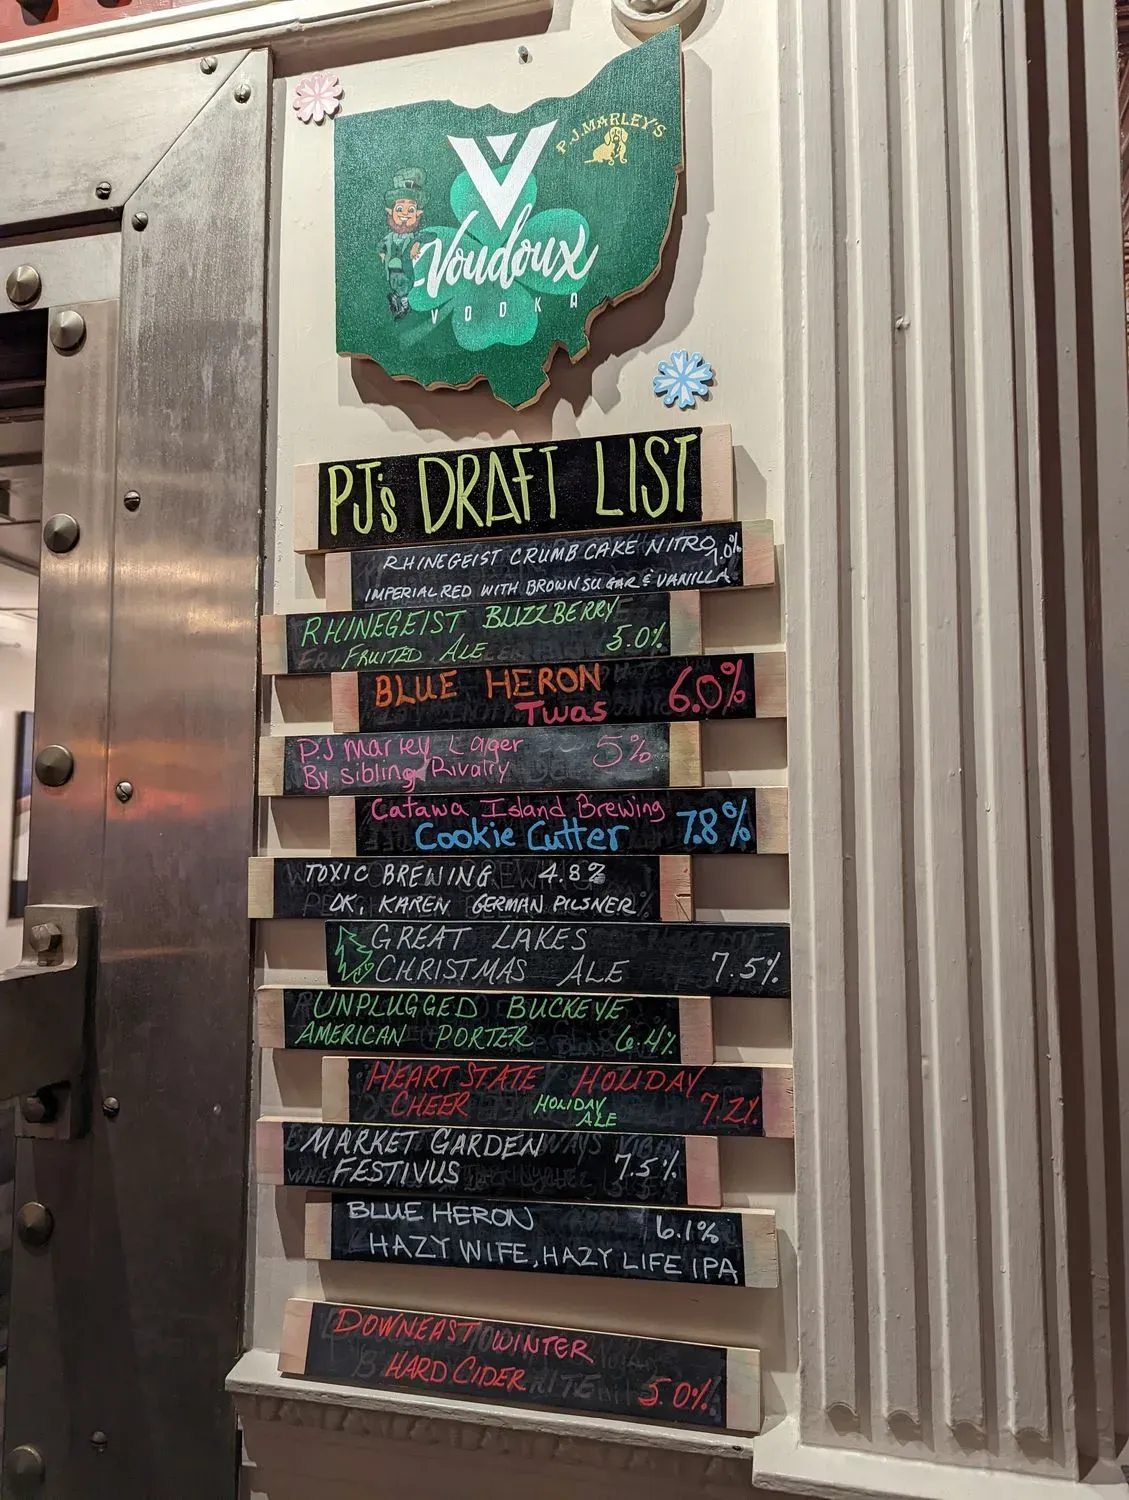 P.J. MARLEY'S
V
Voudoux
VODKA
PJ's DRAFT LIST
RHINEGEIST CRUMB CAKE NITRO 9.0%
IMPERIAL RED WITH BROWN SUGAR & VANILLA
RHINEGEIST BUZZBERRY
FRUITED ALE 5.0%
BLUE HERON 6.0%
Twas
PJ Marley Lager 5%
By sibling Rivalry
Catawa Island Brewing
Cookie Cutter 7.8%
TOXIC BREWING 4.8%
OK, KAREN GERMAN PILSNER
GREAT LAKES
CHRISTMAS ALE 7.5%
UNPLUGGED BUCKEYE
AMERICAN PORTER 6.4%
HEART STATE HOLIDAY
CHEER HOLIDAY ALE 7.2%
MARKET GARDEN
FESTIVUS 7.5%
BLUE HERON 6.1%
HAZY WIFE, HAZY LIFE IPA
DOWNEAST WINTER
HARD CIDER 5.0%